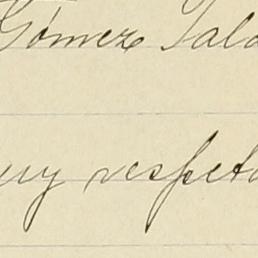 Gómez Pala
uy respeta